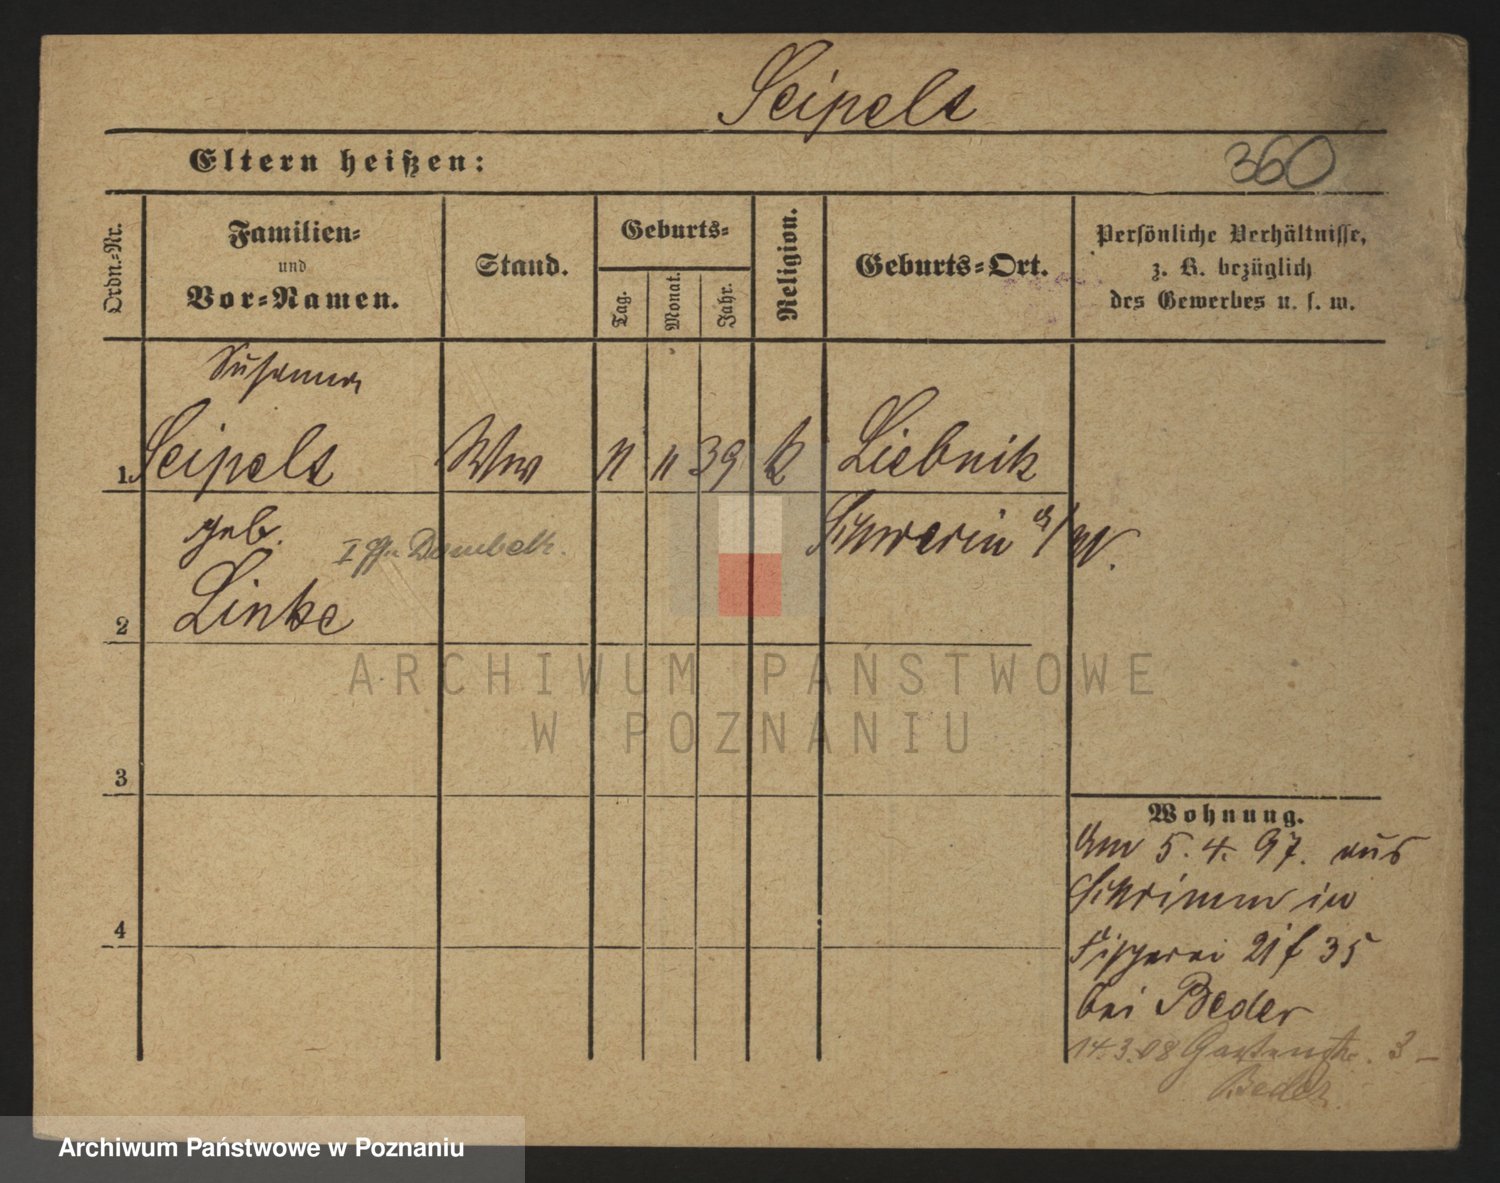 Seipelt
Eltern heißen:
360
Ordn.-Nr.
Familien-
und
Vor-Namen.
Stand.
Geburts-
Tag.
Monat.
Jahr.
Religion.
Geburts-Ort.
Persönliche Verhältnisse,
z. B. bezüglich
des Gewerbes u. s. w.
Susanna
1. Seipelt Ww 11 11 39 k Liebnik
geb. Dombek. Schwerin a/W.
2 Linke
ARCHIWUM PAŃSTWOWE
W POZNANIU
3
Wohnung.
Am 5. 4. 97. aus
Schrimm in
4
Fischerei 21 f 35
bei Beder
14.3.08 Gartenstr. 3
Beder
Archiwum Państwowe w Poznaniu